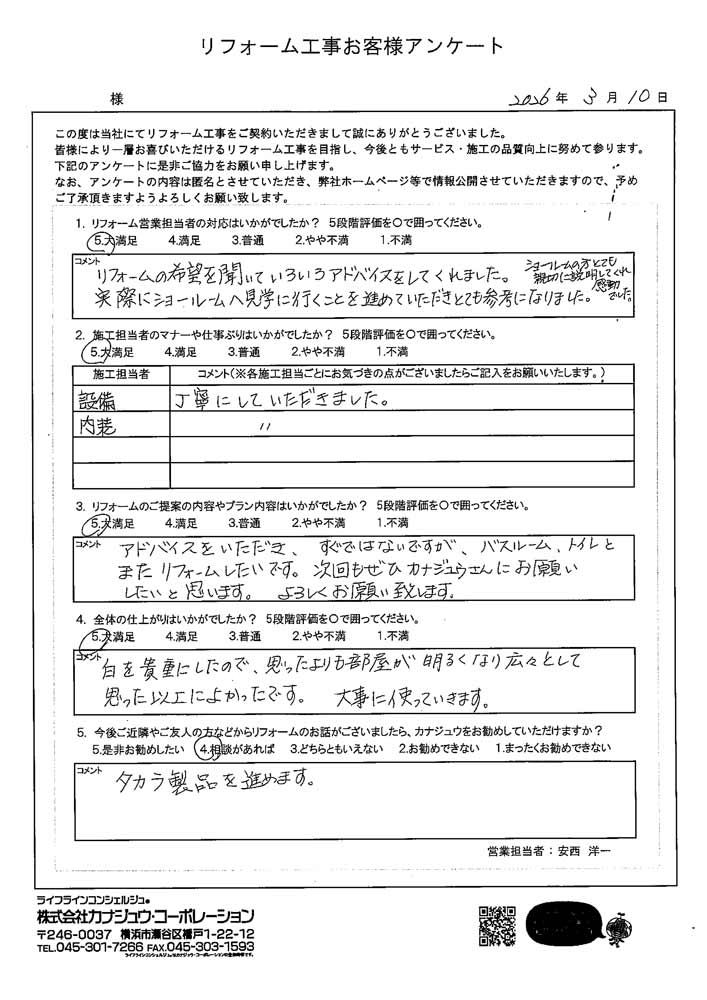 リフォーム工事お客様アンケート
様 2026年 3月10日
この度は当社にてリフォーム工事をご契約いただきまして誠にありがとうございました。
皆様により一層お喜びいただけるリフォーム工事を目指し、今後ともサービス・施工の品質向上に努めて参ります。
下記のアンケートに是非ご協力をお願い申し上げます。
なお、アンケートの内容は匿名とさせていただき、弊社ホームページ等で情報公開させていただきますので、予め
ご了承頂きますようよろしくお願い致します。
1. リフォーム営業担当者の対応はいかがでしたか? 5段階評価を○で囲ってください。
5.大満足 4.満足 3.普通 2.やや不満 1.不満
コメント
リフォームの希望を聞いていろいろアドバイスをしてくれました。
実際にショールームへ見学に行くことを進めていただきとても参考になりました。
ショールームの方とても
親切に説明してくれ
感動
でした。
2. 施工担当者のマナーや仕事ぶりはいかがでしたか? 5段階評価を○で囲ってください。
5.大満足 4.満足 3.普通 2.やや不満 1.不満
施工担当者 コメント(※各施工担当ごとにお気づきの点がございましたらご記入をお願いいたします。)
設備 丁寧にしていただきました。
内装 〃
3. リフォームのご提案の内容やプラン内容はいかがでしたか? 5段階評価を○で囲ってください。
5.大満足 4.満足 3.普通 2.やや不満 1.不満
コメント
アドバイスをいただき、すぐではないですが、バスルーム、トイレと
またリフォームしたいです。次回もぜひカナジュウさんにお願い
したいと思います。よろしくお願い致します。
4. 全体の仕上がりはいかがでしたか? 5段階評価を○で囲ってください。
5.大満足 4.満足 3.普通 2.やや不満 1.不満
コメント
白を貴重にしたので、思ったよりも部屋が明るくなり広々として
思った以上によかったです。 大事に使っていきます。
5. 今後ご近隣やご友人の方などからリフォームのお話がございましたら、カナジュウをお勧めしていただけますか?
5.是非お勧めしたい 4.相談があれば 3.どちらともいえない 2.お勧めできない 1.まったくお勧めできない
コメント
タカラ製品を進めます。
営業担当者:安西 洋一
ライフラインコンシェルジュ®
株式会社カナジュウ・コーポレーション
〒246-0037 横浜市瀬谷区橋戸1-22-12
TEL.045-301-7266 FAX.045-303-1593
ライフラインコンシェルジュはカナジュウ・コーポレーションの登録商標です。